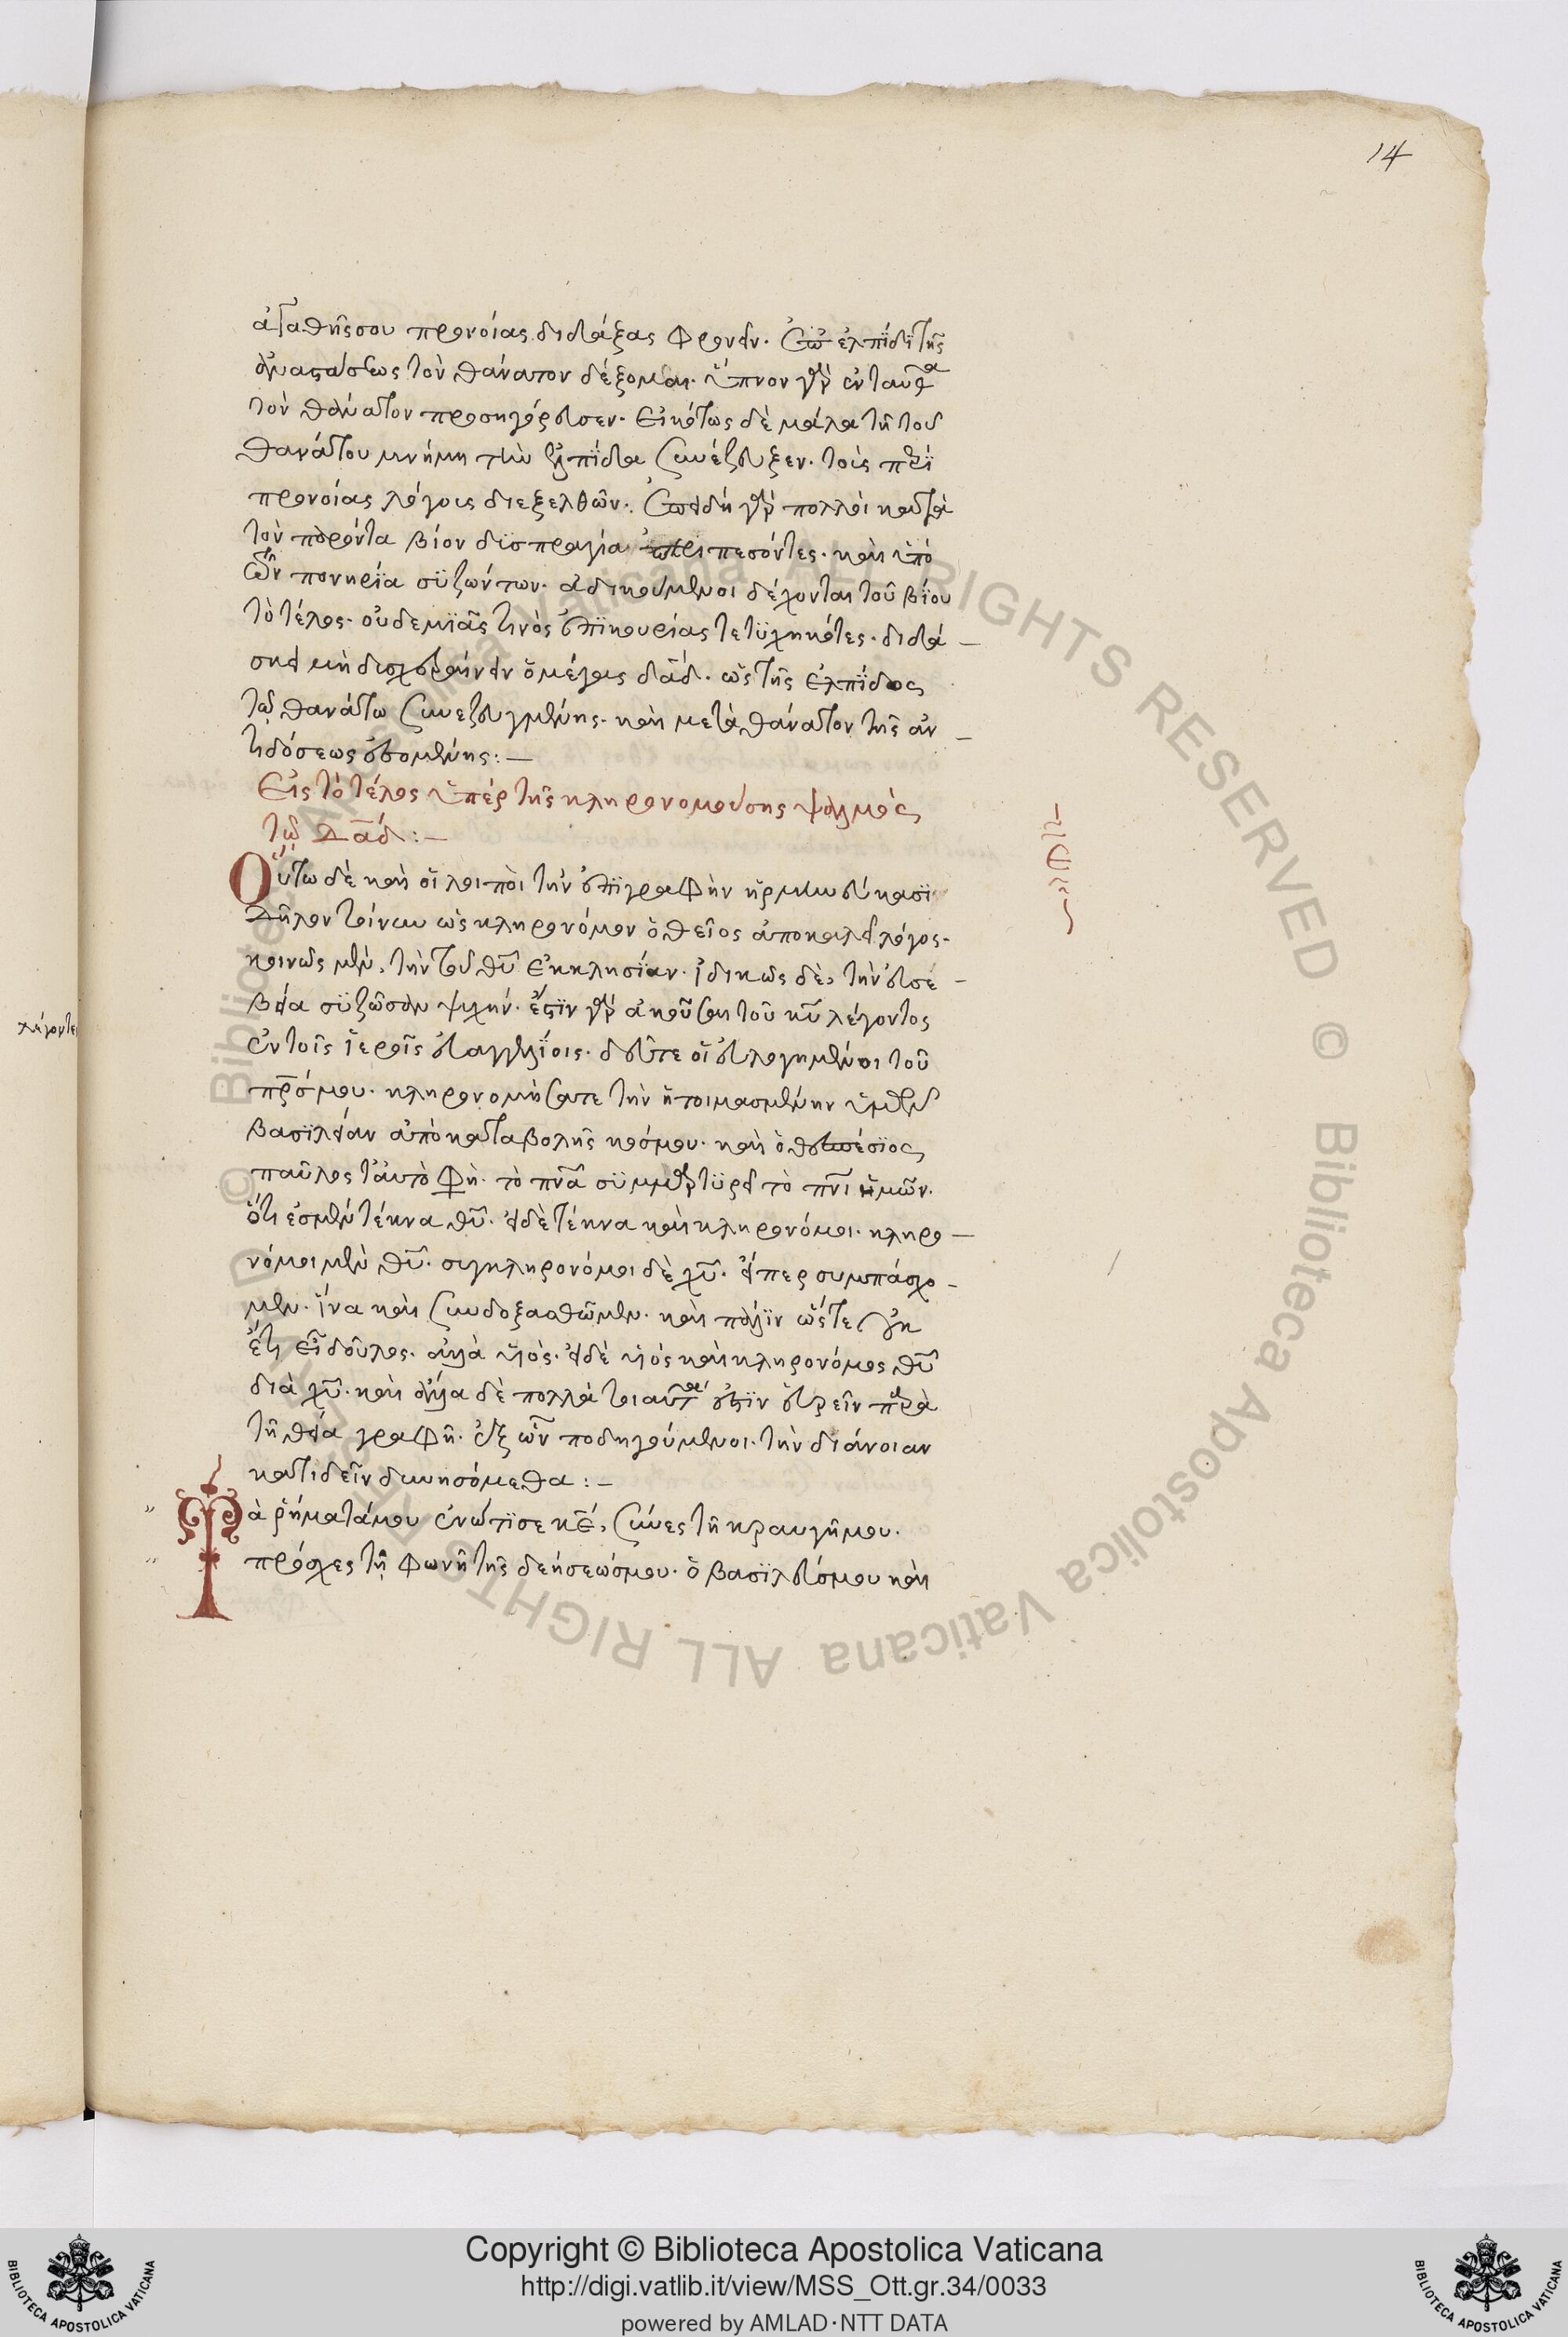 14
ἀγαθῆς σου προνοίας διδάξας φρονεῖν. ἐπ' ἐλπίδι τῆς
ἀναστάσεως τὸν θάνατον δέξομαι. ὕπνον γὰρ ἐνταῦθα
τὸν θάνατον προσηγόρευσεν. εἰκότως δὲ μάλα τῇ τοῦ
θανάτου μνήμη τὴν ἐλπίδα συνέζευξεν. τοὺς περὶ
προνοίας λόγους διεξελθῶν. ἐπειδὴ γὰρ πολλοὶ κατὰ
τὸν παρόντα βίον δυσπραγία περιπεσόντες. καὶ ὑπὸ
τῶν πονηρία συζώντων. ἀδικούμενοι δέχονται τοῦ βίου
τὸ τέλος. οὐδεμιᾶς τινὸς ἐπικουρίας τετυχηκότες. διδά-
σκει μὴ δυσχεραίνειν ὁ μέγας δᾱδ. ὡς τῆς ἐλπίδος
τῷ θανάτω συνεζευγμένης. καὶ μετὰ θάνατον τῆς ἀν-
τιδόσεως ἐσομένης:—
Εἰς τὸ τέλος ὑπὲρ τῆς κληρονομούσης ψαλμὸς
τῷ Δᾱδ:—
Οὕτω δὲ καὶ οἱ λοιποὶ τὴν ἐπιγραφὴν ἡρμηνεύκασι
Δῆλον τοίνυν ὡς κληρονόμον ὁ θεῖος ἀποκαλεῖ λόγος.
κοινῶς μὲν, τὴν τοῦ θῡ ἐκκλησίαν. ἰδικῶς δὲ, τὴν εὐσε-
βεία συζῶσαν ψυχήν. ἔστιν γὰρ ἀκοῦσαι τοῦ κῡ λέγοντος
ἐν τοῖς ἱεροῖς εὐαγγελίοις. δεῦτε οἱ εὐλογημένοι τοῦ
πρ̄σ μου. κληρονομήσατε τὴν ἡτοιμασμένην ὑμῖν
βασιλείαν ἀπὸ καταβολῆς κόσμου. καὶ ὁ θεσπέσιος
παῦλος ταυτὸ φη. τὸ πνᾱ συμμαρτυρεῖ τὸ πνῑ ἡμῶν.
ὅτι ἐσμὲν τέκνα θῡ. εἰ δὲ τέκνα καὶ κληρονόμοι. κληρο-
νόμοι μὲν θῡ. συγκληρονόμοι δὲ χῡ. εἴπερ συμπάσχο-
μεν. ἵνα καὶ συνδοξασθῶμεν. καὶ πάλιν ὥστε οὐκ
ἔτι εἶ δοῦλος. ἀλλὰ υἱός. εἰ δὲ υἱὸς καὶ κληρονόμος θῡ
διὰ χῡ. καὶ ἄλλα δὲ πολλὰ τοιαῦτα ἐστὶν εὑρεῖν παρὰ
τῇ θεία γραφῇ. ἐξ ὧν ποδηγούμενοι. τὴν διάνοιαν
κατιδεῖν δυνησόμεθα:—
Τὰ ῥήματά μου ἐνώτισε κ̄ε, σύνες τῆ κραυγῆ μου.
πρόσχες τῇ φωνῆ τῆς δεήσεώς μου. ὁ βασιλεύς μου καὶ
Copyright © Biblioteca Apostolica Vaticana
http://digi.vatlib.it/view/MSS_Ott.gr.34/0033
powered by AMLAD·NTT DATA